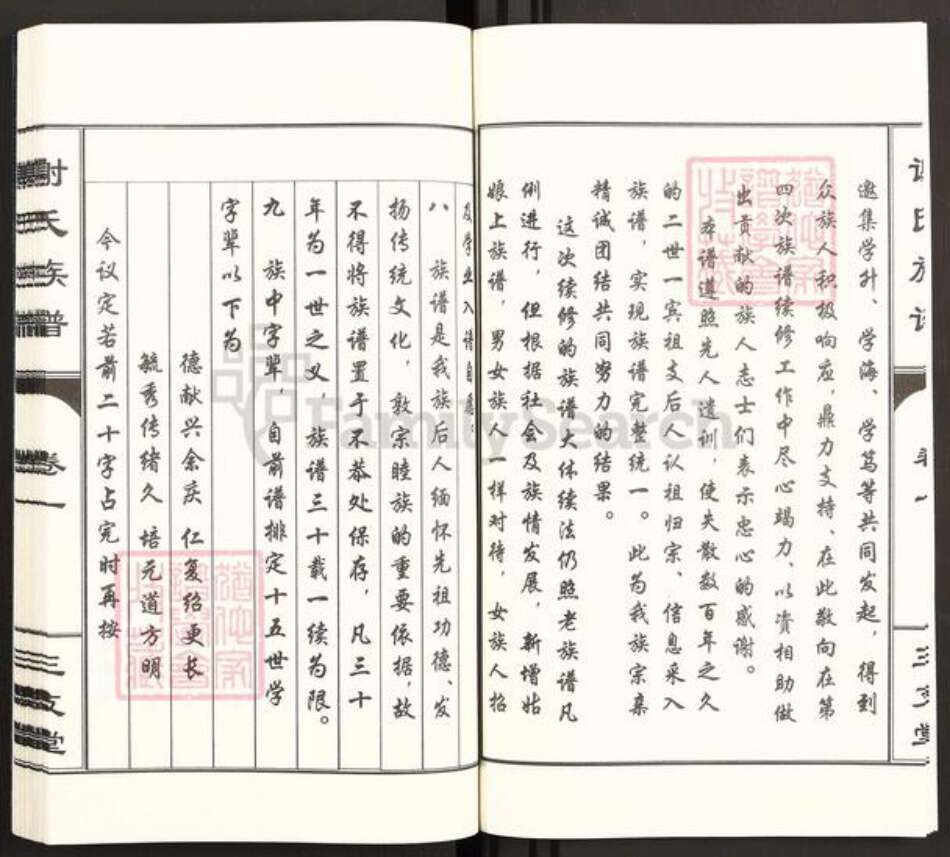 邀集学升、学海、学笃等共同发起，得到
众族人积极响应，鼎力支持、在此敬向在第
四次族谱续修工作中尽心竭力、以资相助做
出贡献的族人志士们表示忠心的感谢。
本谱遵照先人遗训，使失散数百年之久
的二世一宾祖支后人认祖归宗、信息采入
族谱，实现族谱完整统一。此为我族宗亲
精诚团结共同努力的结果。
这次续修的族谱大体续法仍照老族谱凡
例进行，但根据社会及族情发展，新增姑
娘上族谱，男女族人一样对待，女族人招
八 族谱是我族后人缅怀先祖功德、发
扬传统文化，敦宗睦族的重要依据，故
不得将族谱置于不恭处保存，凡三十
年为一世之义，族谱三十载一续为限。
九 族中字辈，自前谱排定十五世学
字辈以下为
德献兴余庆 仁复绍更长
毓秀传绪久 培元道方明
今议定若前二十字占完时再按
谢氏族谱
卷一
三支堂
FamilySearch